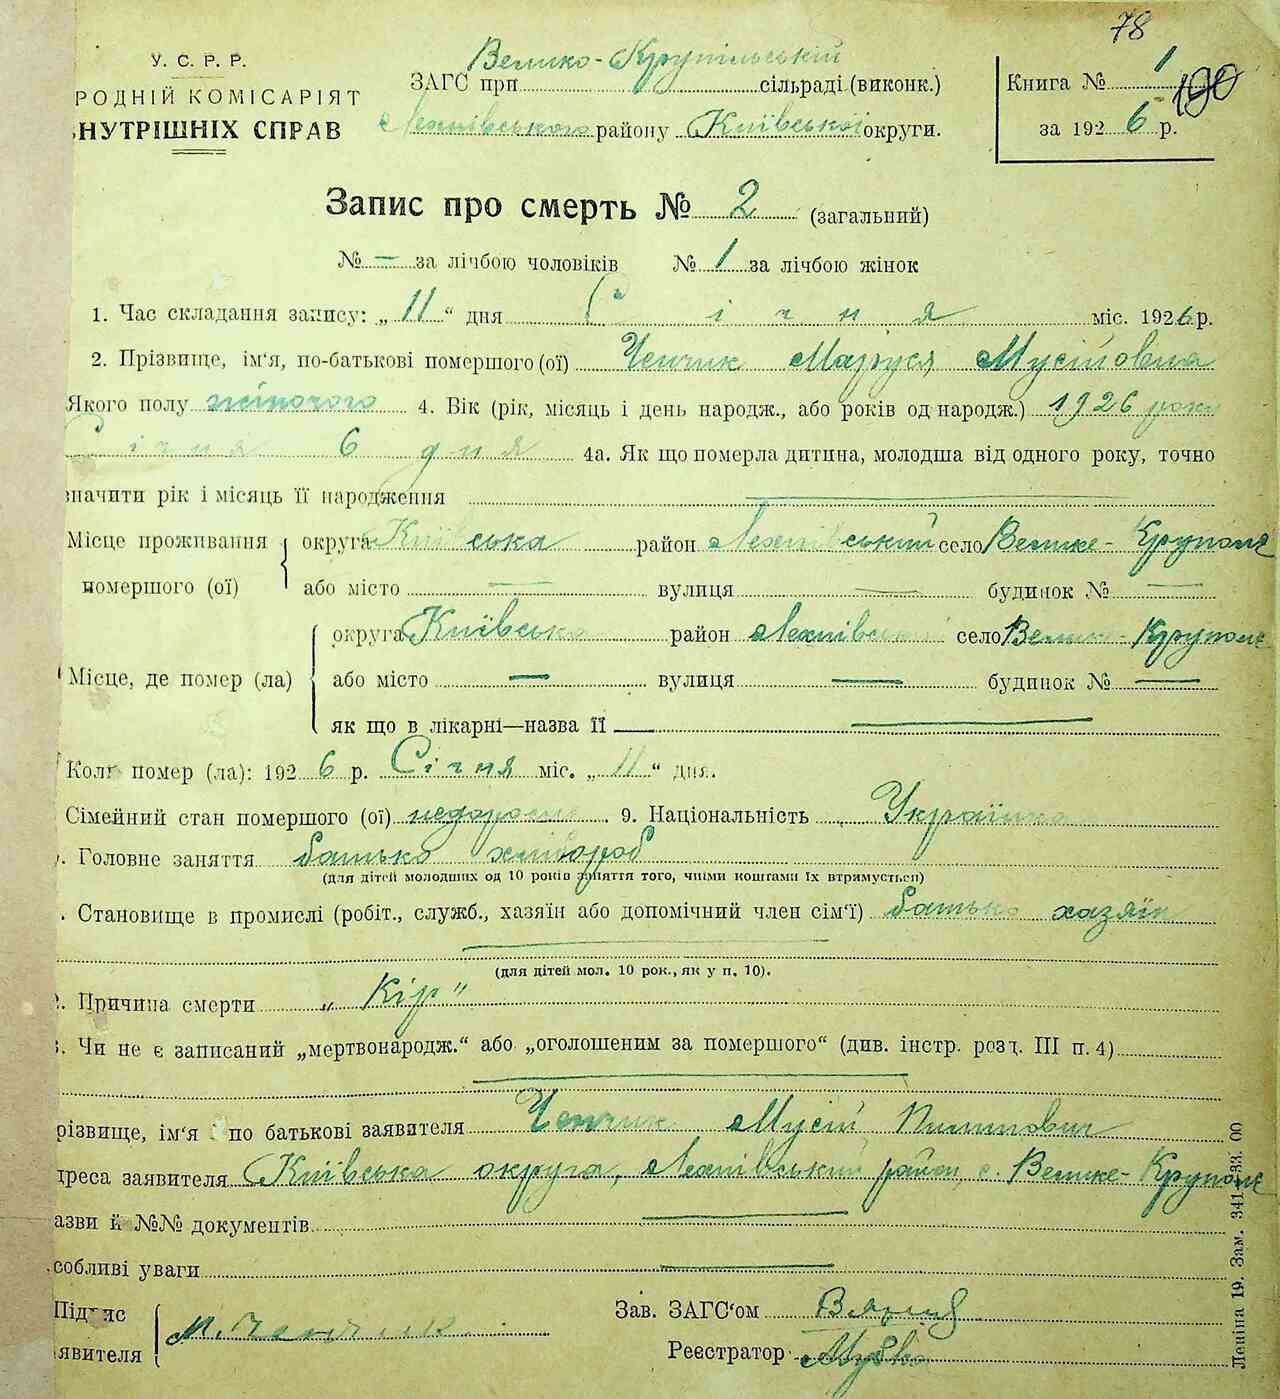 78
У. С. Р. Р.
РОДНІЙ КОМІСАРІЯТ
НУТРІШНІХ СПРАВ
ЗАГС при Велико-Крупільській сільраді (виконк.)
району Київської округи.
Книга № 1 190
за 1926 р.
Запис про смерть № 2 (загальний)
№ – за лічбою чоловіків № 1 за лічбою жінок
1. Час складання запису: „11“ дня Січня міс. 1926 р.
2. Прізвище, ім'я, по-батькові помершого (ої) Ченчик Маруся Мусійовна
Якого полу жіночого 4. Вік (рік, місяць і день народж., або років од народж.) 1926 року
Січня 6 дня 4а. Як що померла дитина, молодша від одного року, точно
значити рік і місяць її народження —
Місце проживання округа Київська район село Велике-Крупол
помершого (ої) або місто — вулиця — будинок № —
округа Київська район село Велике-Крупол
Місце, де помер (ла) або місто — вулиця — будинок № —
як що в лікарні—назва її —
Коли помер (ла): 1926 р. Січня міс. „11“ дня.
Сімейний стан помершого (ої) 9. Національність Українка
Головне заняття батько хлібороб
(для дітей молодших од 10 років заняття того, чиїми коштами їх втримується)
. Становище в промислі (робіт., служб., хазяїн або допомічний член сім'ї) батько хазяїн
(для дітей мол. 10 рок., як у п. 10).
2. Причина смерти „Кір“
3. Чи не є записаний „мертвонародж.“ або „оголошеним за помершого“ (див. інстр. розд. III п. 4)
різвище, ім'я і по батькові заявителя Ченчик Мусій Пилипович
дреса заявителя Київська округа, район, с. Велике-Крупол
азви й №№ документів —
собливі уваги —
Підпис
явителя М. Ченчик
Зав. ЗАГС'ом
Реєстратор
Леніна 19. Зам. 341